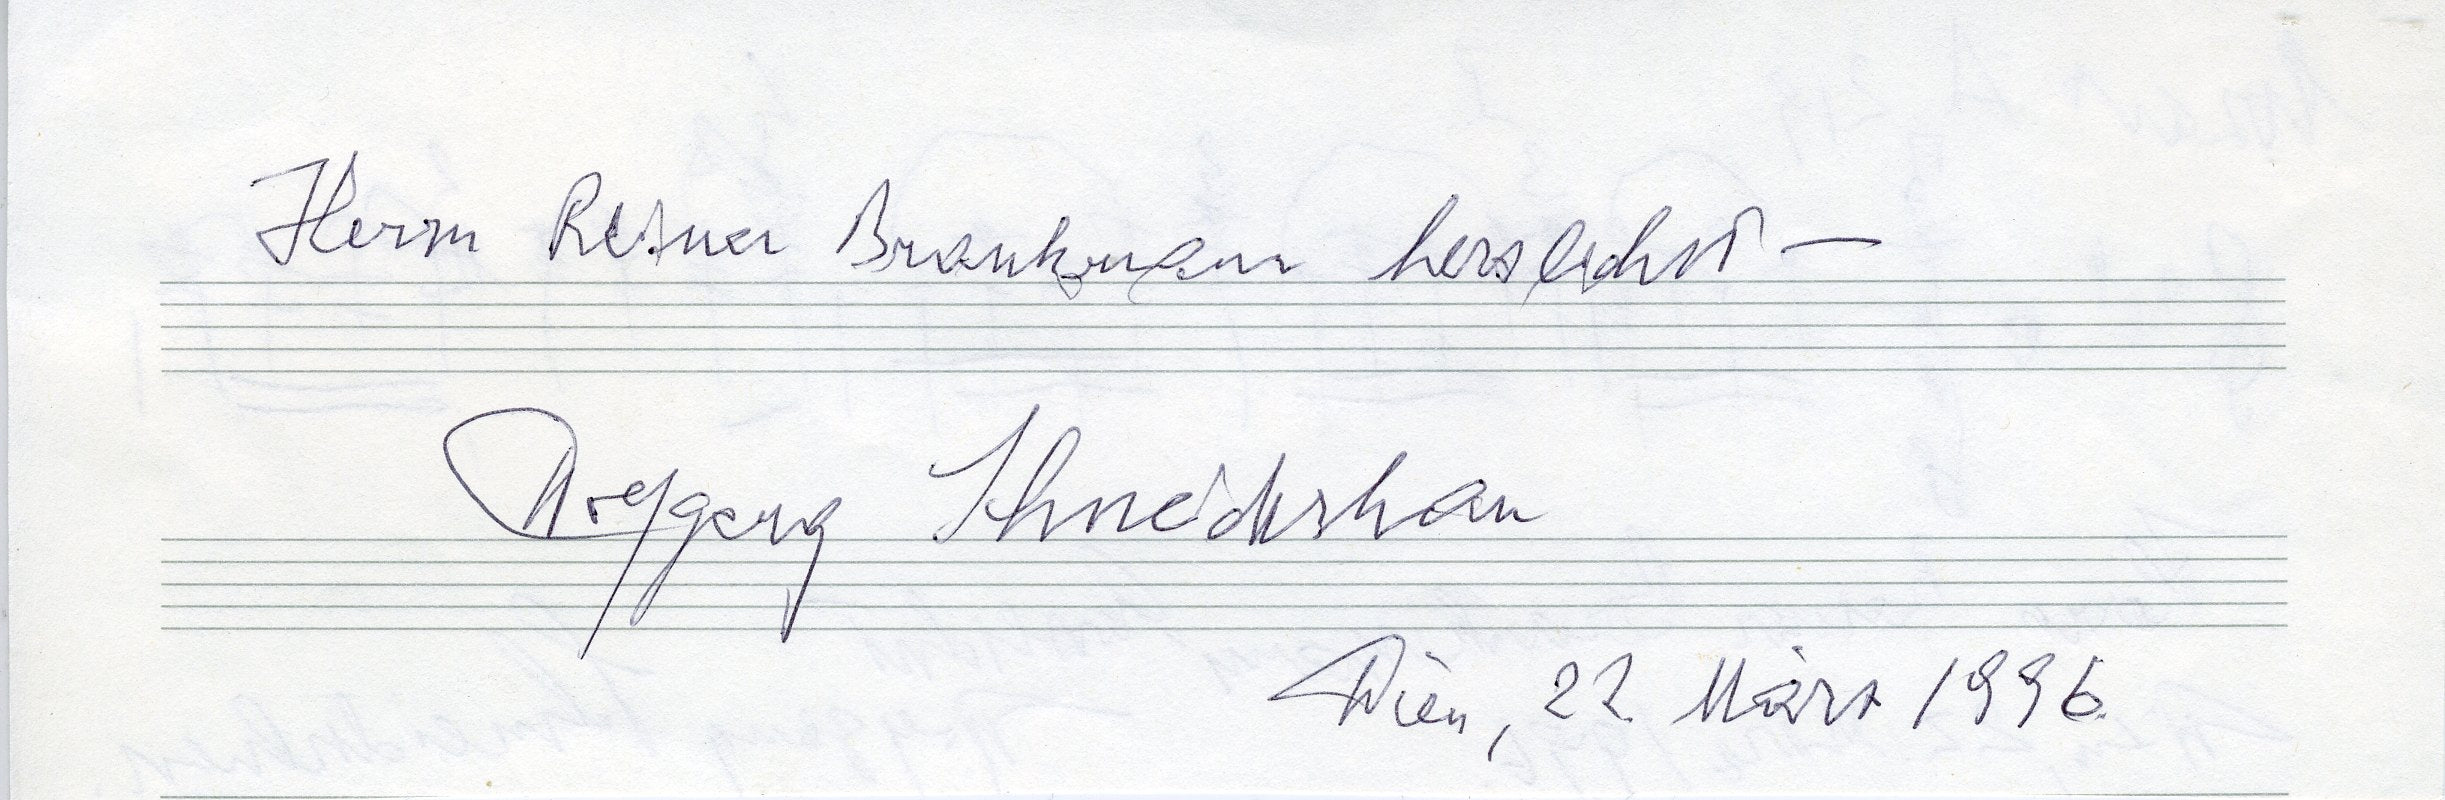 Herrn Reiner Brankmann herzlichst —
Wolfgang Schneiderhan
Wien, 22. März 1996.